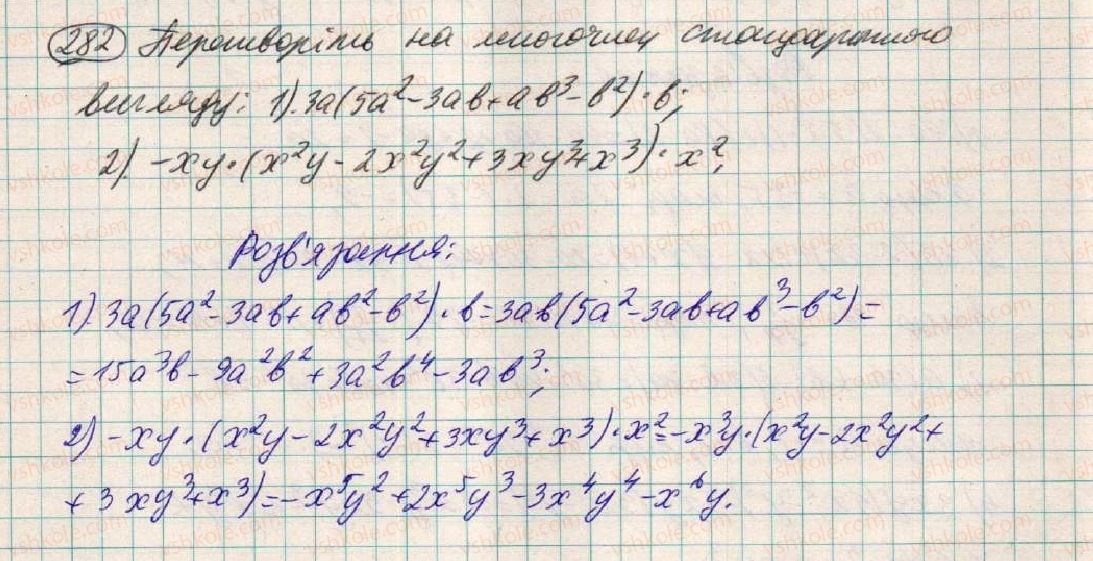 282 Перетворіть на многочлен стандартного
вигляду: 1). 3a(5a² - 3ab + ab³ - b²) · b;
2). -xy · (x²y - 2x²y² + 3xy³ + x³) · x²;
Розв'язання:
1). 3a(5a² - 3ab + ab² - b²) · b = 3ab(5a² - 3ab + ab³ - b²) =
= 15a³b - 9a²b² + 3a²b⁴ - 3ab³;
2) -xy · (x²y - 2x²y² + 3xy³ + x³) · x² = -x³y · (x²y - 2x²y² +
+ 3xy³ + x³) = -x⁵y² + 2x⁵y³ - 3x⁴y⁴ - x⁶y.